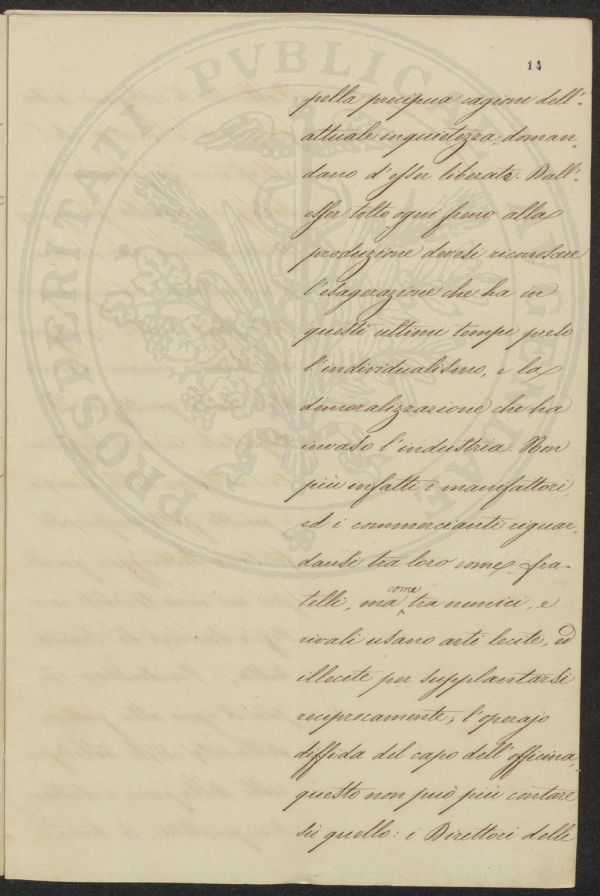 14
PROSPERITATI PVBLICAE AVGENDAE
pella precipua cagione dell'
attuale inquietezza, doman-
dano d'esser liberate. Dall'
esser tolto ogni freno alla
produzione devesi riconoscere
l'esagerazione che ha in
questi ultimi tempi preso
l'individualismo, e la
demoralizzazione che ha
invaso l'industria. Non
più infatti i manifattori,
ed i commercianti riguar-
dansi tra loro come fra-
telli, ma come tra nemici, e
rivali usano arti lecite, ed
illecite per supplantarsi
reciprocamente; l'operajo
diffida del capo dell'officina,
questo non può più contare
su quello: i Direttori delle